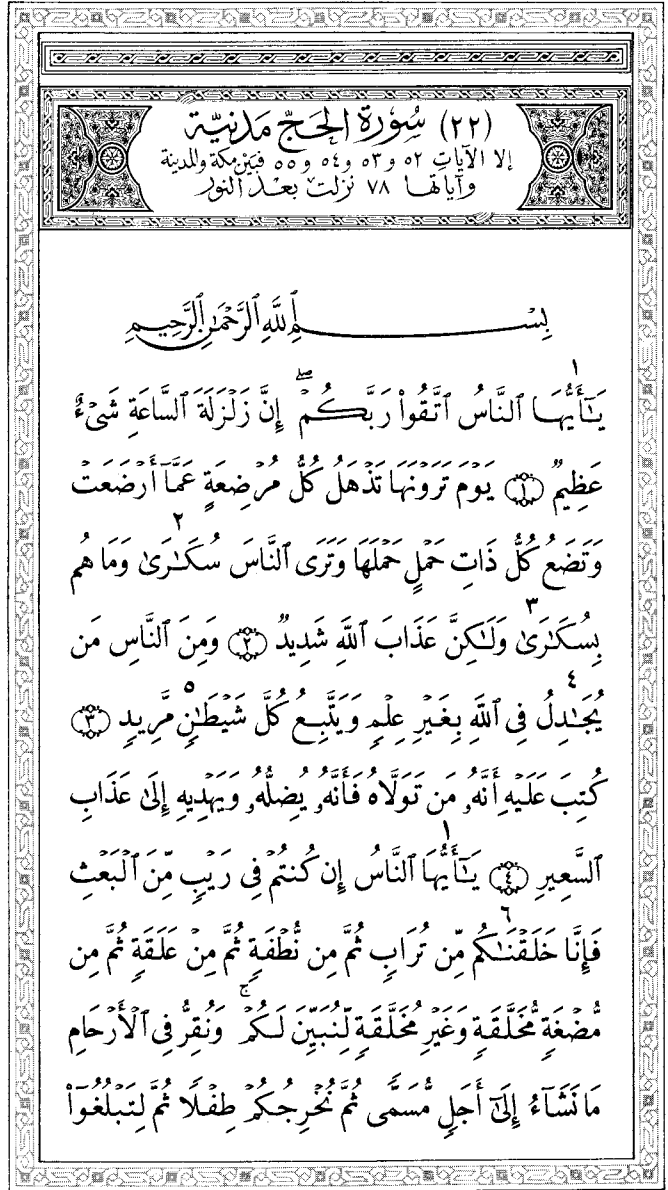 (٢٢) سُورَة الحَجّ مَدَنيَّة
إلا الآيات ٥٢ و٥٣ و٥٤ و٥٥ فبين مكة والمدينة
وآياتها ٧٨ نزلت بعد النور
بِسْمِ ٱللَّهِ ٱلرَّحْمَٰنِ ٱلرَّحِيمِ
١
يَـٰٓأَيُّهَا ٱلنَّاسُ ٱتَّقُوا۟ رَبَّكُمْ ۖ إِنَّ زَلْزَلَةَ ٱلسَّاعَةِ شَىْءٌ
عَظِيمٌ ﴿١﴾ يَوْمَ تَرَوْنَهَا تَذْهَلُ كُلُّ مُرْضِعَةٍ عَمَّآ أَرْضَعَتْ
٢
وَتَضَعُ كُلُّ ذَاتِ حَمْلٍ حَمْلَهَا وَتَرَى ٱلنَّاسَ سُكَـٰرَىٰ وَمَا هُم
٣
بِسُكَـٰرَىٰ وَلَـٰكِنَّ عَذَابَ ٱللَّهِ شَدِيدٌ ﴿٢﴾ وَمِنَ ٱلنَّاسِ مَن
٤
٥
يُجَـٰدِلُ فِى ٱللَّهِ بِغَيْرِ عِلْمٍ وَيَتَّبِعُ كُلَّ شَيْطَـٰنٍ مَّرِيدٍ ﴿٣﴾
كُتِبَ عَلَيْهِ أَنَّهُۥ مَن تَوَلَّاهُ فَأَنَّهُۥ يُضِلُّهُۥ وَيَهْدِيهِ إِلَىٰ عَذَابِ
١
ٱلسَّعِيرِ ﴿٤﴾ يَـٰٓأَيُّهَا ٱلنَّاسُ إِن كُنتُمْ فِى رَيْبٍ مِّنَ ٱلْبَعْثِ
٦
فَإِنَّا خَلَقْنَـٰكُم مِّن تُرَابٍ ثُمَّ مِن نُّطْفَةٍ ثُمَّ مِنْ عَلَقَةٍ ثُمَّ مِن
مُّضْغَةٍ مُّخَلَّقَةٍ وَغَيْرِ مُخَلَّقَةٍ لِّنُبَيِّنَ لَكُمْ ۚ وَنُقِرُّ فِى ٱلْأَرْحَامِ
مَا نَشَآءُ إِلَىٰٓ أَجَلٍ مُّسَمًّى ثُمَّ نُخْرِجُكُمْ طِفْلًا ثُمَّ لِتَبْلُغُوٓا۟